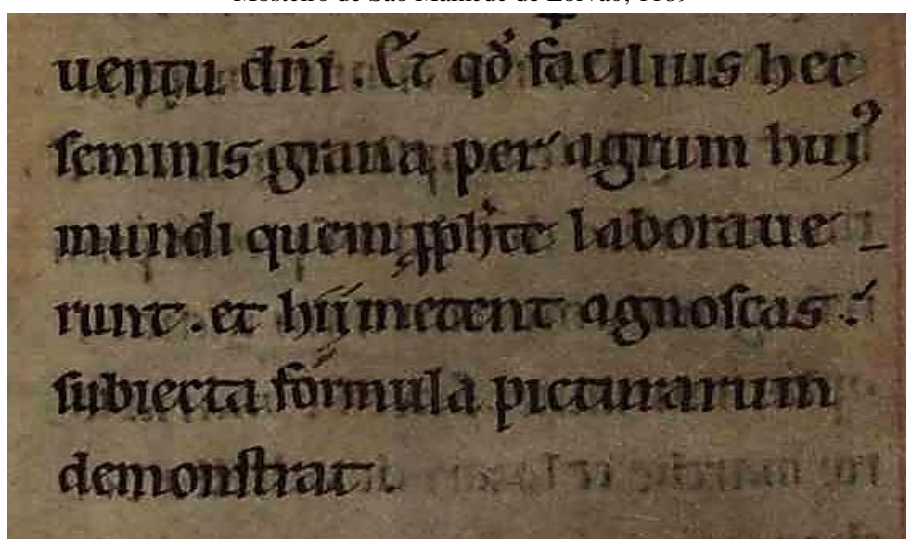 Mosteiro de São Mamede de Lorvão, 1189
uentu dñi. Et qđ facilius hec
ſeminis grana per agrum huiꝰ
mundi quem ꝓphe laboraue
runt. et hii metent agnoſcas ؛
ſubiecta formula picturarum
demonſtrat.